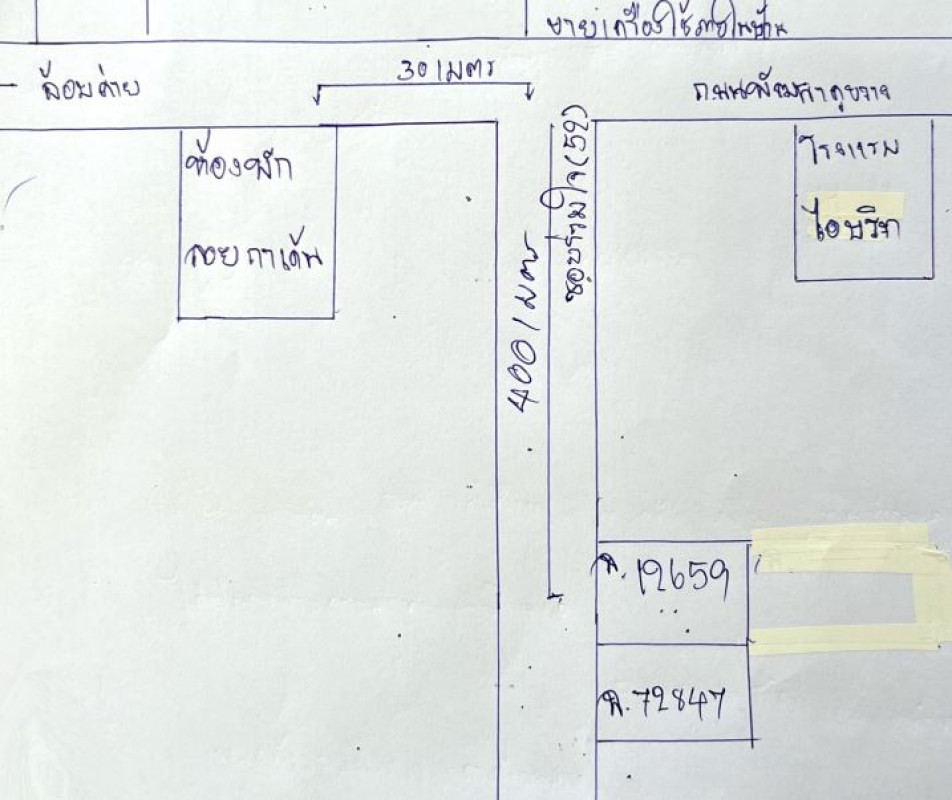 ขายเครื่องใช้ภายในบ้าน
30 เมตร
ล้อมค่าย
ห้องพัก
ลอยกาเด้น
400 เมตร
ซอยร่วมใจ (59)
โรงแรม
ไอบริก
ฉ. 12659
ฉ. 72847